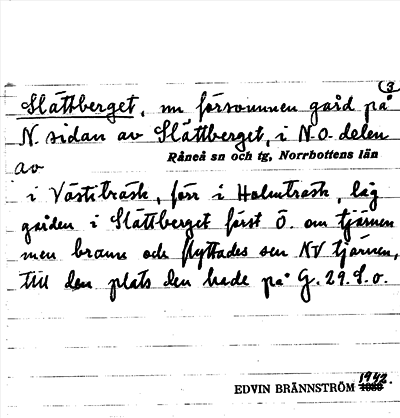 3
Slättberget, nu försvunnen gård på
N. sidan av Slättberget, i N.O. delen
Råneå sn och tg, Norrbottens län
av
i Västiträsk, förr i Holmträsk, låg
gården i Slättberget först Ö. om tjärnen
men brann och flyttades sen NV tjärnen,
till den plats den hade på G. 29. S.o.
EDVIN BRÄNNSTRÖM 1942.